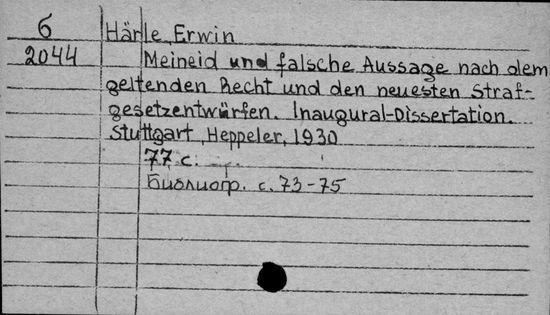 б Härle, Erwin
2044 Meineid und falsche Aussage nach dem
geltenden Recht und den neuesten Straf-
gesetzentwürfen. Inaugural-Dissertation.
Stuttgart, Heppeler, 1930
77 с.
Библиогр. с. 73-75